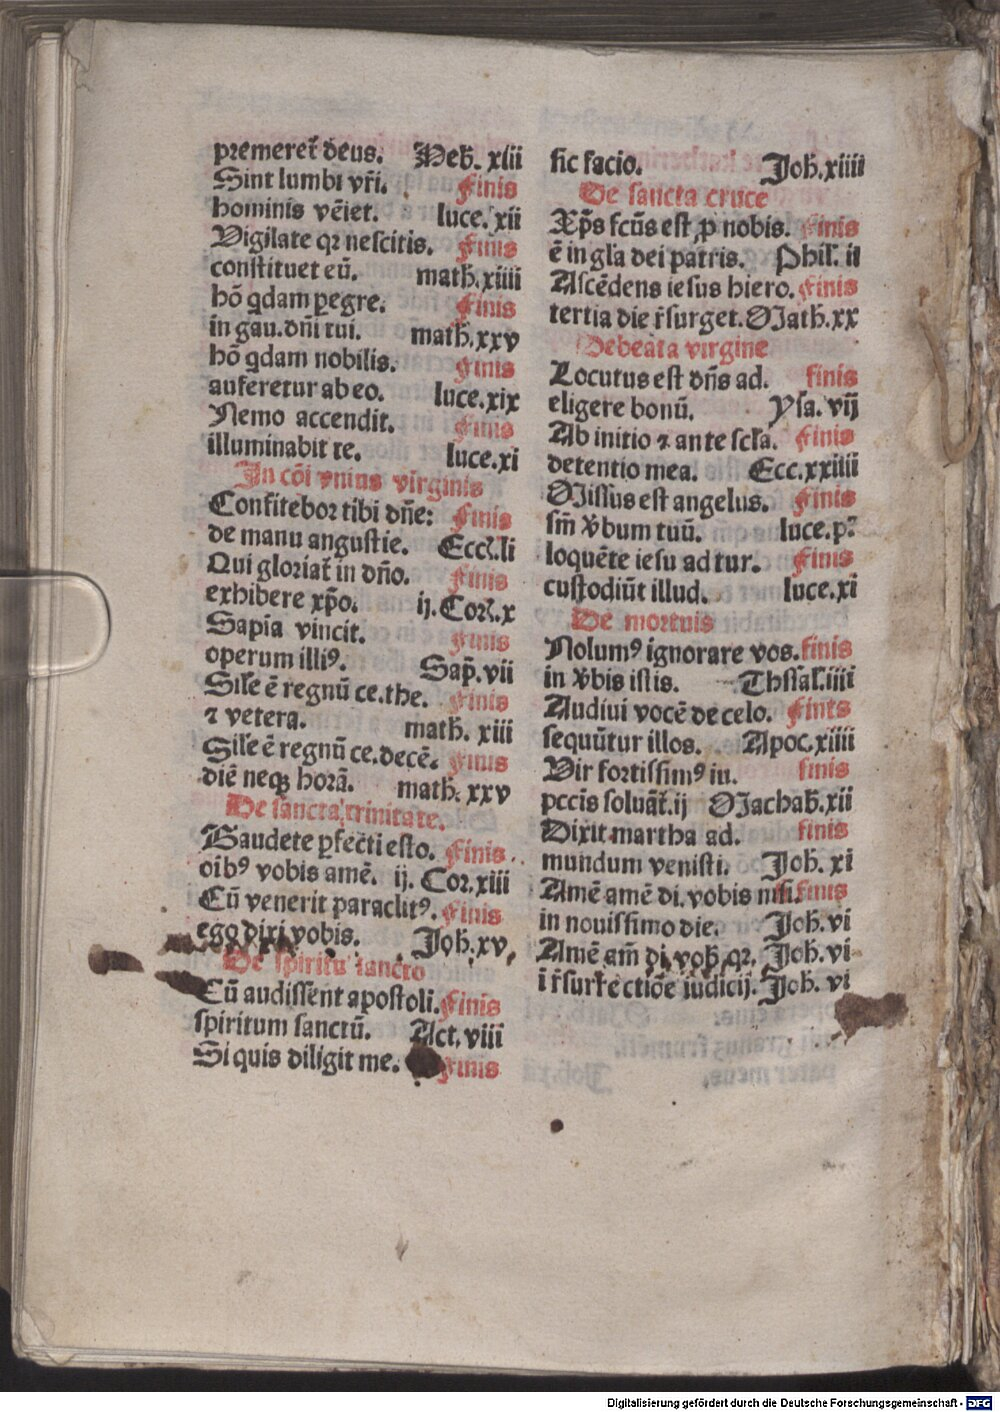 premeret̄ deus. Heb̄. xlii
Sint lumbi vr̄i. Finis
hominis vēiet. luce. xii
Vigilate qꝛ nescitis. Finis
constituet eū. math̄. xiiii
hō qdam ꝑegre. Finis
in gau. dn̄i tui. math̄. xxv
hō qdam nobilis. Finis
auferetur ab eo. luce. xix
Nemo accendit. Finis
illuminabit te. luce. xi
In cōi vnius virginis
Confitebor tibi dn̄e: Finis
de manu angustie. Eccl̄. li
Qui gloriat̄ in dn̄o. Finis
exhibere xp̄o. ij. Cor̄. x
Sapīa vincit. Finis
operum illiꝰ. Sap̄. vii
Sil̄e ē regnū ce. the. Finis
⁊ vetera. math̄. xiii
Sil̄e ē regnū ce. decē. Finis
diē neqꝫ horā. math̄. xxv
De sancta trinitate.
Gaudete ꝑfecti esto. Finis
oibꝰ vobis amē. ij. Cor. xiii
Cū venerit paraclitꝰ. Finis
ego dixi vobis. Joh̄. xv,
De spiritu sancto
Cū audissent apostoli. Finis
spiritum sanctū. Act. viii
Si quis diligit me. Finis
sic facio. Joh̄. xiiii
De sancta cruce
Xp̄s fcūs est ꝓ nobis. Finis
ē in gl̄a dei patris. Phil̄. ii
Ascēdens iesus hiero. Finis
tertia die r̄surget. Math̄. xx
De beata virgine
Locutus est dn̄s ad. finis
eligere bonū. Ysa. vij
Ab initio ⁊ ante scl̄a. Finis
detentio mea. Ecc. xxiiii
Missus est angelus. Finis
sm̄ v̄bum tuū. luce. pꝛ
loquēte iesu ad tur. Finis
custodiūt illud. luce. xi
De mortuis
Nolumꝰ ignorare vos. finis
in v̄bis istis. Thssal̄. iiii
Audiui vocē de celo. Finis
sequūtur illos. Apoc. xiiii
Vir fortissimꝰ iu. finis
pccīs soluāt̄. ij Machab̄. xii
Dixit martha ad. finis
mundum venisti. Joh̄. xi
Amē amē di. vobis nisi. finis
in nouissimo die. Joh̄. vi
Amē am̄ di. vob̄. qꝛ. Joh̄. vi
ī r̄surrectiōe iudicij. Joh̄. vi
Digitalisierung gefördert durch die Deutsche Forschungsgemeinschaft - DFG